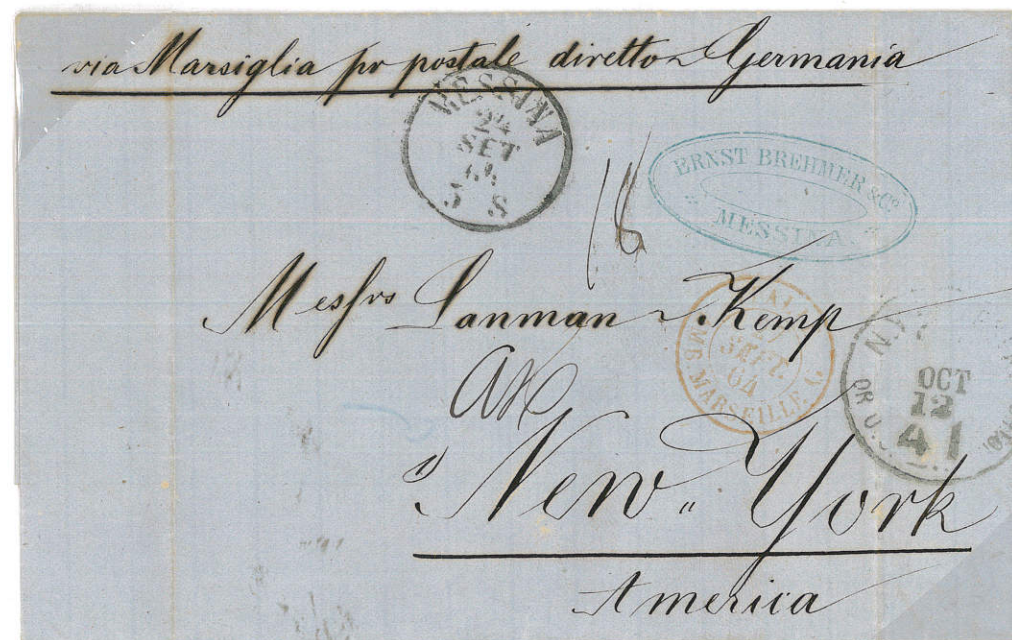 via Marsiglia pr postale diretto Germania
MESSINA
24
SET
64
5 S
ERNST BREHMER & Co.
MESSINA
18
Messrs Lanman & Kemp
MARSEILLE
SEPT.
64
OCT
12
41
New York
America